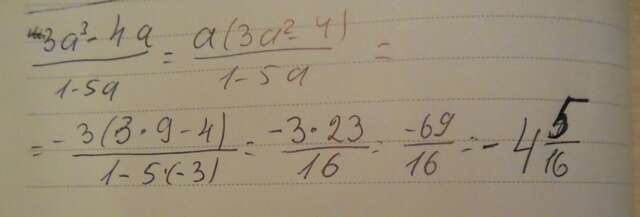 (3a³-4a)/(1-5a) = a(3a²-4)/(1-5a) =
= -3(3·9-4)/(1-5·(-3)) = -3·23/16 = -69/16 = -4 5/16